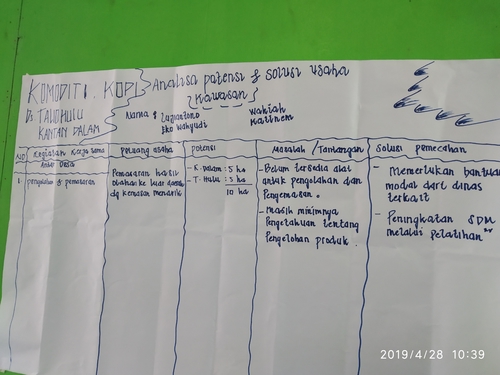 KOMODITI . KOPI
Analisa potensi & solusi usaha
{ Kawasan }
Ds TAUDHULU
KANTAN DALAM
Nama :
Eko Wahyudi
Wakiah
Katinem
NO
Kegiatan Kerja sama Antar Desa
Peluang usaha
Potensi
Masalah / Tantangan
Solusi pemecahan
1.
pengolahan & pemasaran
Pemasaran hasil
olahan ke luar daerah
dg kemasan menarik
- K. Dalam : 5 ha
- T. Hulu : 5 ha
10 ha
- Belum tersedia alat
untuk pengolahan dan
Pengemasan .
- Masih minimnya
Pengetahuan tentang
Pengelohan produk .
- Memerlukan bantuan
modal dari dinas
terkait
- Peningkatan SDM
melalui pelatihan"
2019/4/28 10:39